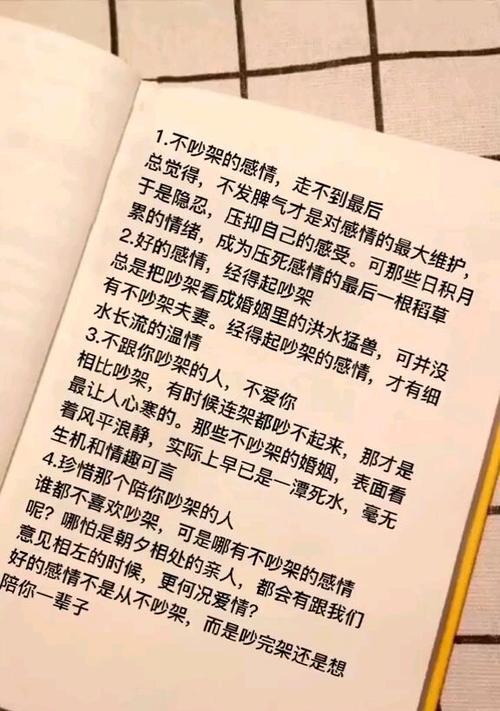 1.不吵架的感情，走不到最后
总觉得，不发脾气才是对感情的最大维护，
于是隐忍，压抑自己的感受。可那些日积月
累的情绪，成为压死感情的最后一根稻草
2.好的感情，经得起吵架
总是把吵架看成婚姻里的洪水猛兽，可并没
有不吵架夫妻。经得起吵架的感情，才有细
水长流的温情
3.不跟你吵架的人，不爱你
相比吵架，有时候连架都吵不起来，那才是
最让人心寒的。那些不吵架的婚姻，表面看
着风平浪静，实际上早已是一潭死水，毫无
生机和情趣可言
4.珍惜那个陪你吵架的人
谁都不喜欢吵架，可是哪有不吵架的感情
呢？哪怕是朝夕相处的亲人，都会有跟我们
意见相左的时候，更何况爱情？
好的感情不是从不吵架，而是吵完架还是想
陪你一辈子